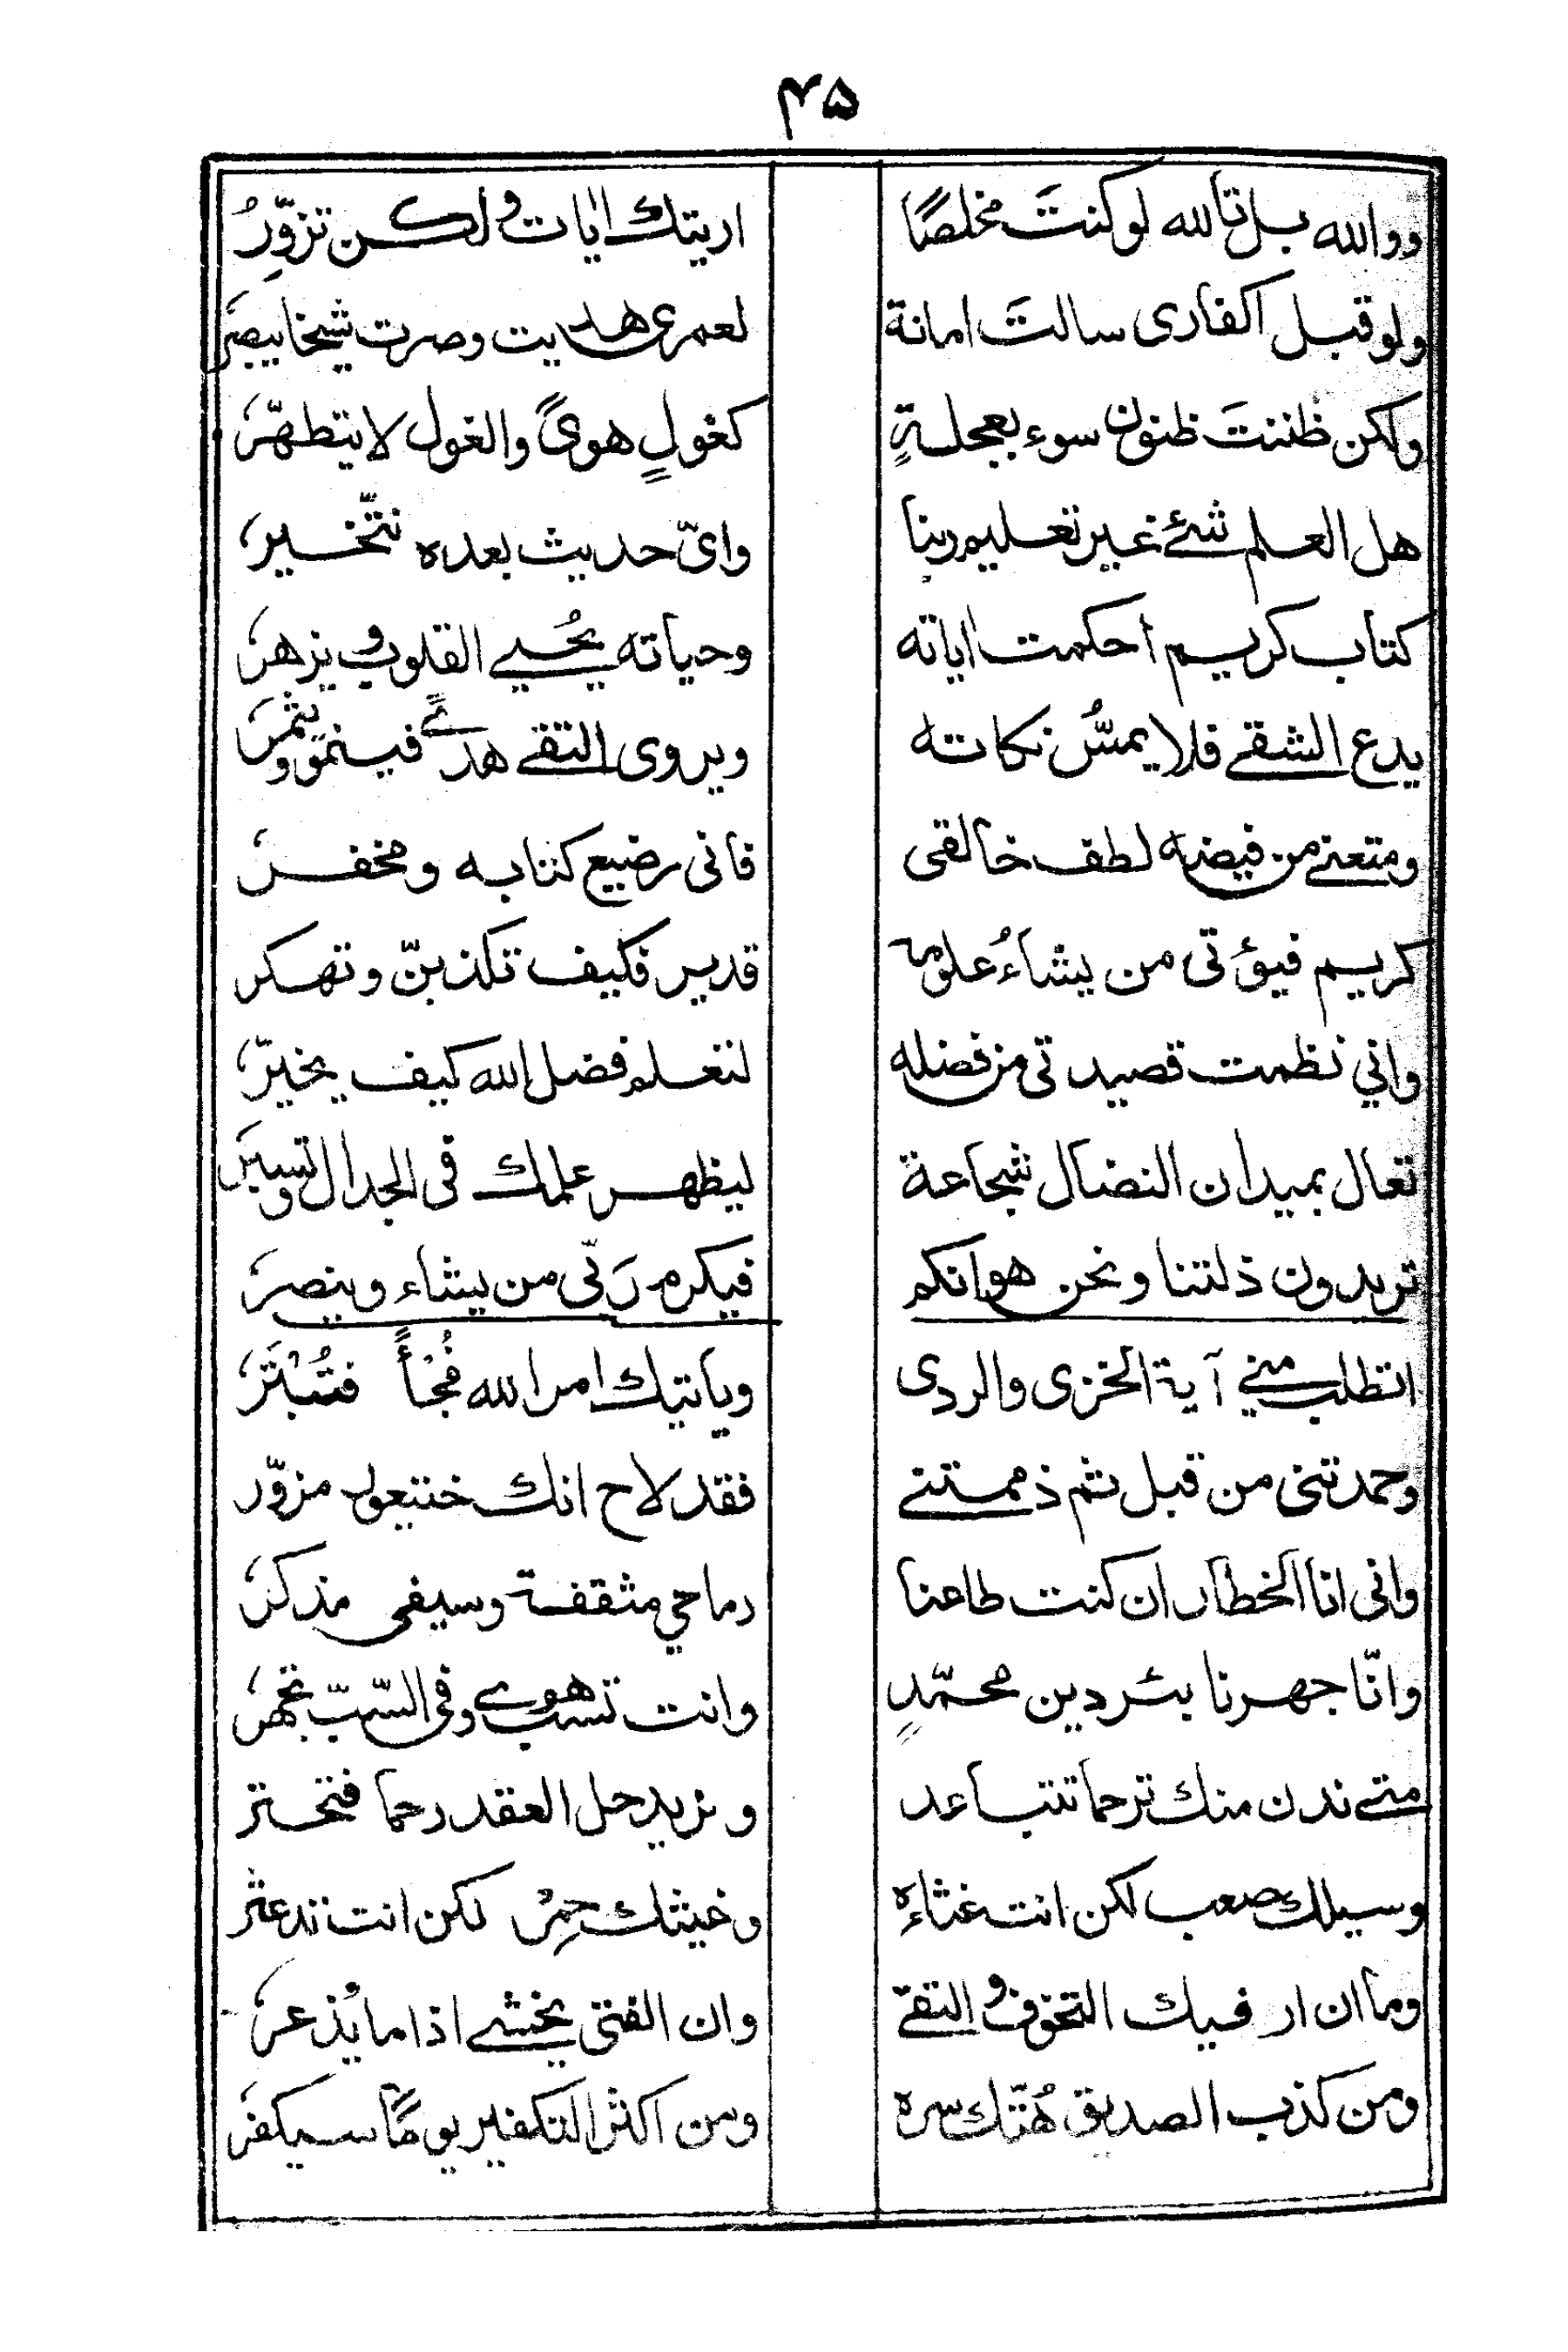 ۴۵
وواللّه بل تاللّه لو كنتَ مخلصًا اريتك اٰيات ولكن تزوّرُ
ولو قبل اكفارى سالتَ امانة لعمرى هديت وصرت شيخا يبصّر
ولكن ظننتَ ظنون سوء بعجلةٍ كغولٍ هوىً والغول لا يتطهّر
هل العلم شئ غير تعليم ربنا واىّ حديث بعده نتخيّر
كتاب كريم احكمت اٰياته وحياته يُحيى القلوب ويزهر
يدع الشقى فلا يمسُّ نكاته ويروى التقى هدىً فينمو ويثمر
ومتعنى من فيضه لطف خالقى فانى رضيع كتابه ومخفر
كريم فيؤتى من يشاءُ علومه قدير فكيف تكذبنّ وتهكر
وانى نظمت قصيدتى من فضله لتعلم فضل اللّه كيف يخيّر
تعال بميدان النضال شجاعة ليظهر علمك فى الجدال وتسبر
تريدون ذلتنا ونحن هوانكم فيكرم ربّى من يشاء وينصر
اتطلب منى آية الخزى والردى وياتيك امر اللّه فُجْأً فتُبْتَر
وحمدتنى من قبل ثم ذممتنى فقد لاح انك خنتعول مزوّر
وانى انا الخطار ان كنت طاعنا رماحى مثقفة وسيفى مذكر
وانّا جهرنا بئر دين محمّدٍ وانت تسب هوى وفى السّبّ تجهر
متى ندن منك ترحما تتباعد ونريد حل العقد رحما فتحتر
وسيلك صعب لكن انت غثاءه وغيثك جمر لكن انت تدعثر
وما ان ار فيك التخوف والتقى وان الفتى يخشى اذا ما يُذعر
ومن كذب الصديق هُتّك سره ومن اكثر التكفير يومًا سيكفر